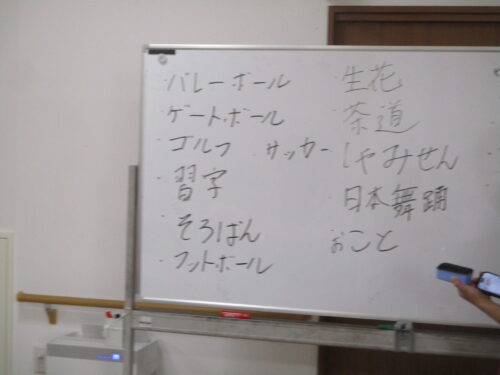 ・バレーボール
・ゲートボール
・ゴルフ サッカー
・習字
・そろばん
・フットボール
・生花
・茶道
・しゃみせん
・日本舞踊
・おこと